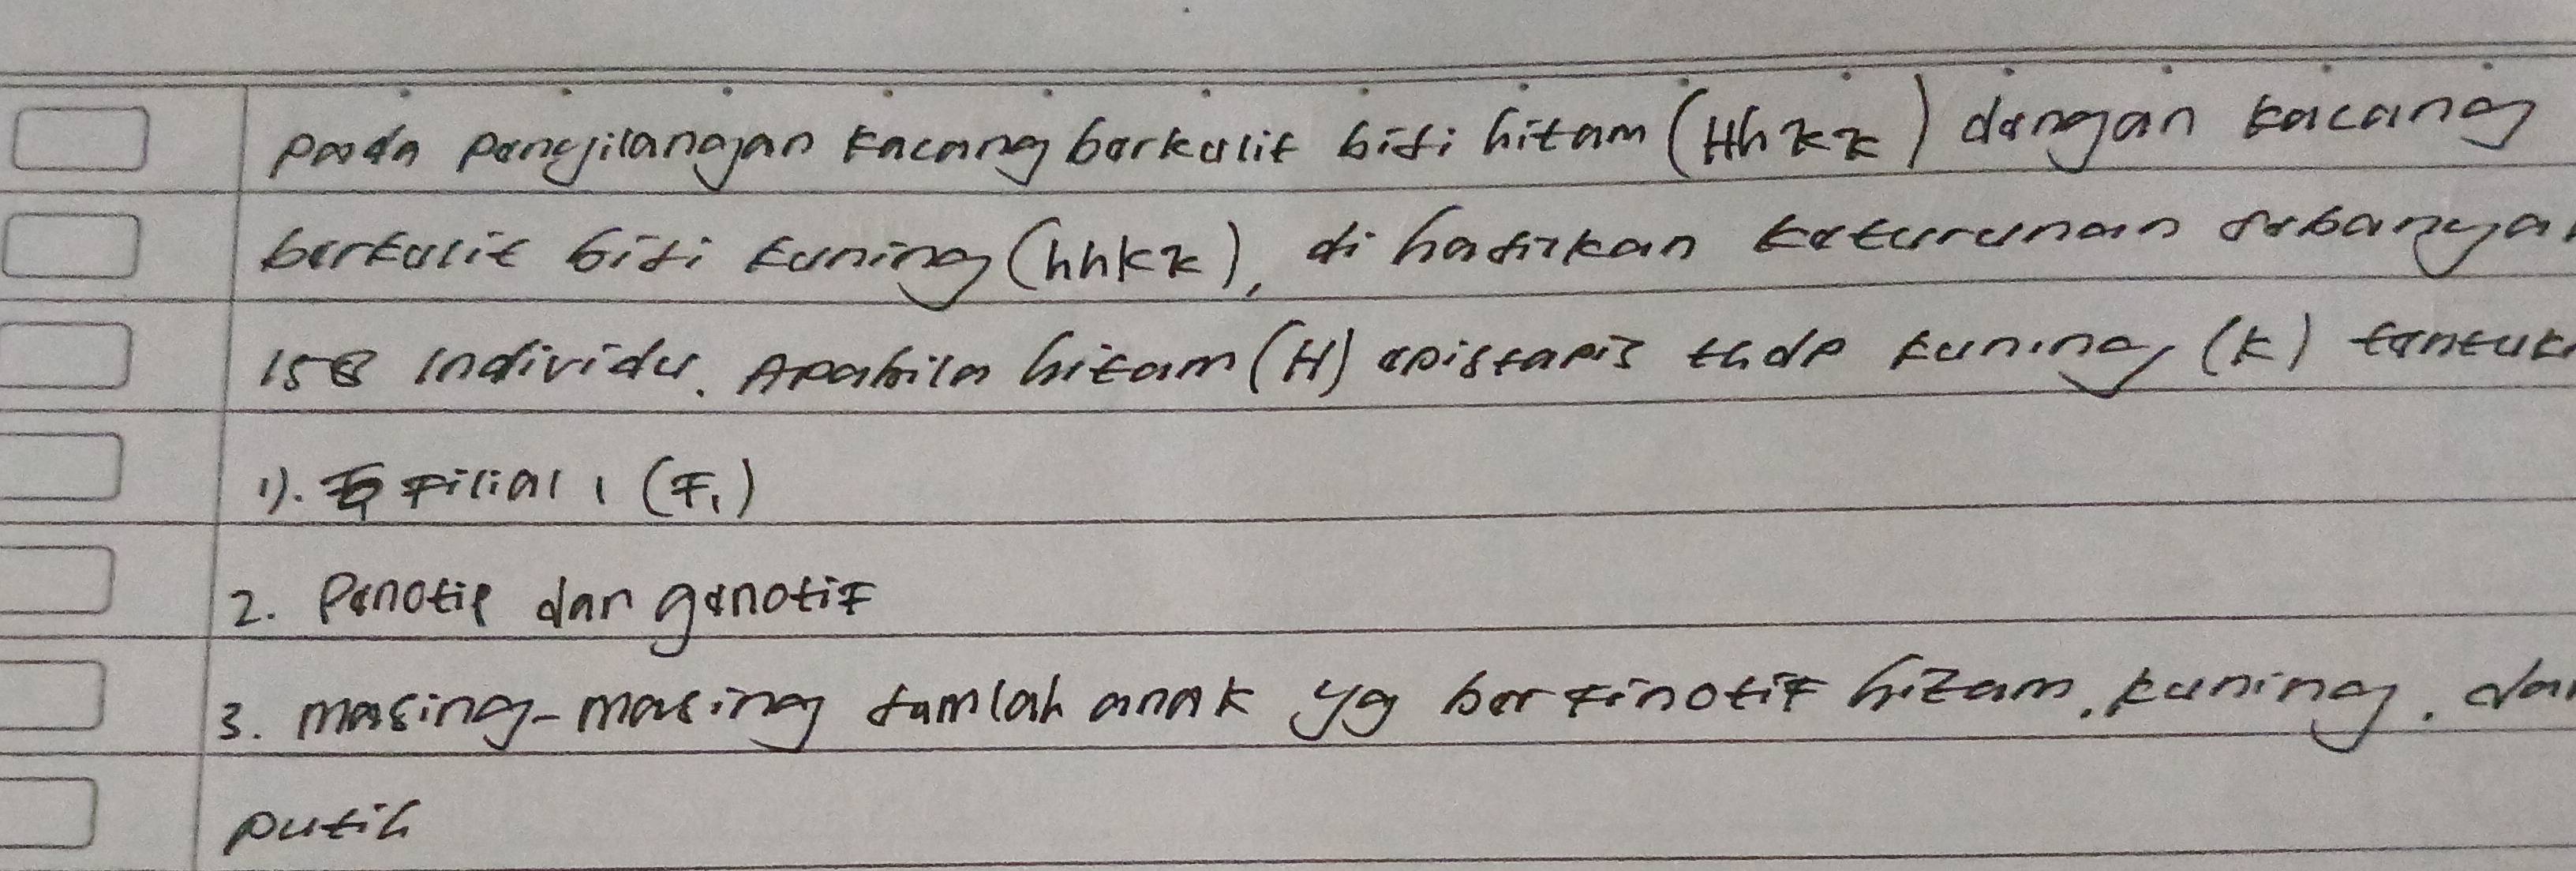 pada penyilangan kacang berkulit biji hitam (Hhkk) dengan kacang
berkulit biji kuning (hhKk), di hasilkan keturunan sebanya
158 individu. Apabila hitam (H) epistasis thdp kuning (k) tentuk
1). Filial 1 (F1)
2. Penotip dan genotif
3. masing-masing jumlah anak yg berfinotif hitam, kuning, da
putih